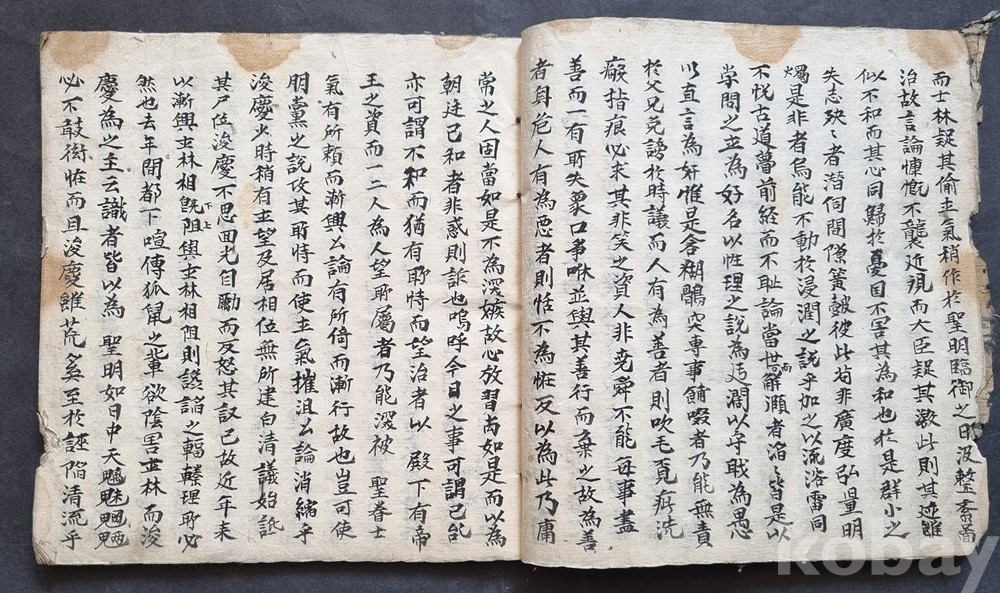 而士林疑其偷士氣稍作於聖明臨御之日汲整
治故言論慷慨不襲近規而大臣疑其激此則其迹雖
似不和而其心同歸於憂國不害其為和也於是群小之
失志殃〻者潜伺間隙簧皷彼此苟非廣度弘量明
燭是非者烏能不動於浸潤之說乎加之以流俗雷同
不悅古道蔑前経而不耻論當世而觧頤者滔〻皆是以
学問之士為好名以性理之說為迂濶以守戝為愚
以直言為奸惟是含糊鶻突專事餔啜者乃能無責
於父兄免謗於時議而人有為善者則吹毛覓疵洗
癥指痕必求其非笑之資人非尭舜不能每事盡
善而一有所失衆口爭咻並與其善行而棄之故為善
者身危人有為惡者則恬不為恠反以為此乃庸
常之人固當如是不為深嫉故心放習尚如是而以為
朝廷已和者非惑則訴也嗚呼今日之事可謂已乱
亦可謂不和而猶有所恃而望治者以 殿下有帝
王之資而一二人為人望所屬者乃能深被 聖眷士
氣有所頼而漸興公論有所倚而漸行故也豈可使
朋黨之說攻其所恃而使士氣摧沮公論消縮乎
浚慶少時稍有士望及居相位無所建白清議始詆
其尸位浚慶不思回光自勵而反怒其訟己故近年来
以漸興士林相旣阻與士林相阻則諂之輻輳理所必
然也去年間都下喧傳狐鼠之輩欲陰害士林而浚
慶為之主云識者皆以為 聖明如日中天魑魅魍魎
必不敢衒恠而且浚慶雖荒矣至於誣陷清流乎
kobay